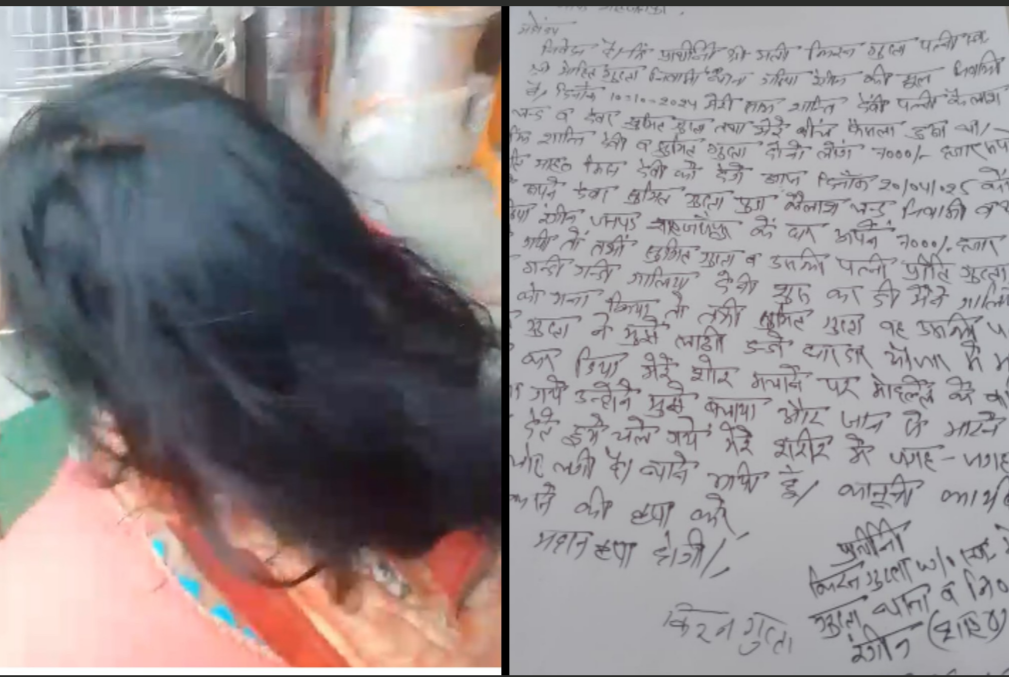 महोदय
निवेदन है कि प्रार्थीनी श्री मती किरन गुप्ता पत्नी स्व
श्री मोहित गुप्ता निवासी थाना रंगीन की मूल निवासी
है। दिनाँक 10-10-2024 मेरी सास शान्ति देवी पत्नी कैलाश
चन्द्र व देवर सुमित गुप्ता तथा मेरे बीच फैसला हुआ था।
कि शान्ति देवी व सुमित गुप्ता दोनो लोग 7000/- हजार रूपये
माह किरन देवी को देगे आज दिनाँक 20/04/025 को
अपने देवर सुमित गुप्ता पुत्र कैलाश चन्द्र निवासी
रंगीन जनपद शाहजहाँपुर के घर अपने 7000/- हजार
गयी तो तभी सुमित गुप्ता व उसकी पत्नी प्रीति गुप्ता
गन्दी गन्दी गालिया देनी शुरू कर दी मैने गालि
को मना किया तो तभी सुमित गुप्ता वह उसकी प
गुप्ता ने मुझे लाठी डन्डो
कर दिया मेरे शोर मचाने पर मोहल्ले के
गये उन्होने मुझे बचाया और जान से मारने
देते हुये चले गये मेरे शरीर मे जगह-जगह
चोट लगी है। थाने आयी हूँ। कानूनी कार्य
करने की कृपा करे
महान कृपा होगी।
प्रार्थीनी
किरन गुप्ता w/o स्व० मो
गुप्ता थाना व नि०
रंगीन
किरन गुप्ता